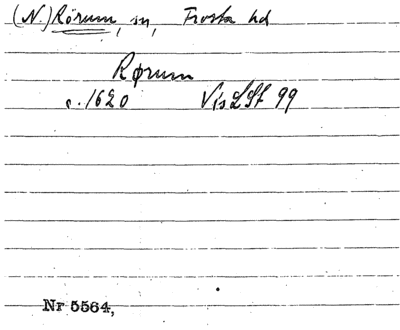 (N.) Rörum, sn, Frosta hd
Rørum
c. 1620 Vis LSt 99
Nr 5564,